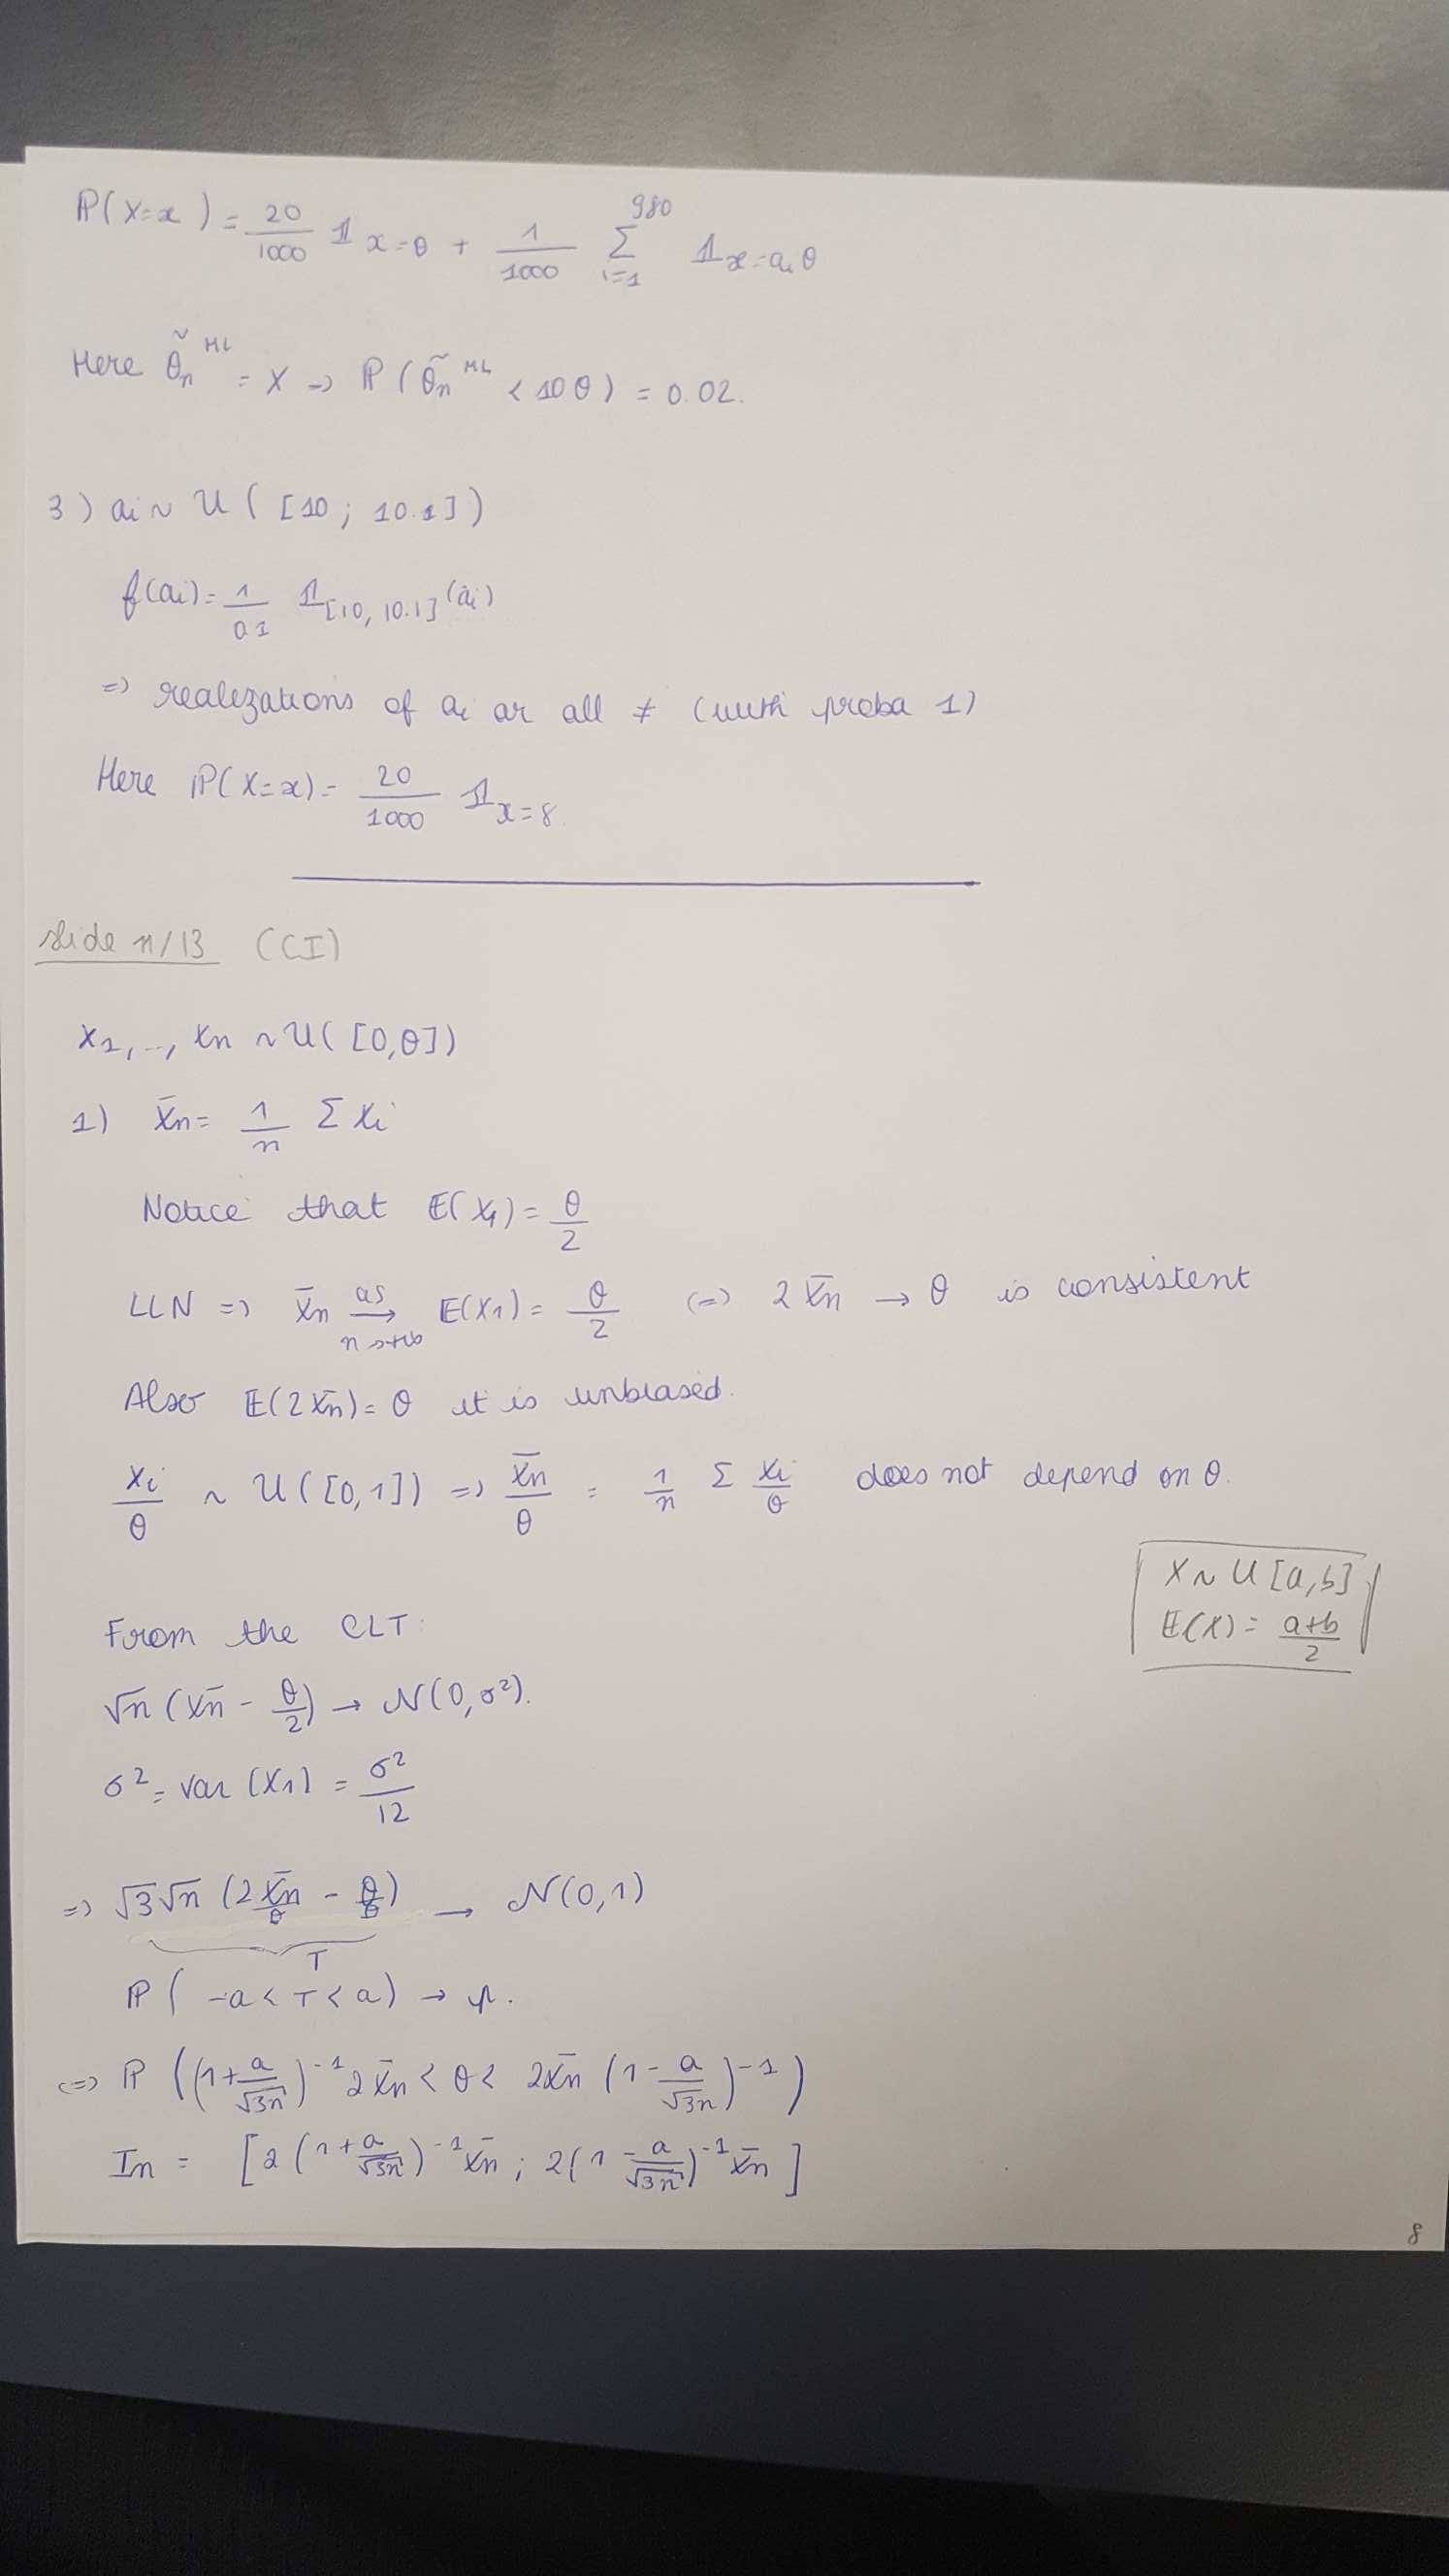 P(X=x) = 20/1000 𝟙 x=θ + 1/1000 Σ_{i=1}^{980} 𝟙 x=aᵢθ
Here θ̃n^ML = X → P(θ̃n^ML < 10θ) = 0.02.
3) ai ~ U([10; 10.1])
f(ai) = 1/0.1 𝟙[10, 10.1](ai)
=> realizations of ai ar all ≠ (with proba 1)
Here P(X=x) = 20/1000 𝟙 x=8
slide n/13 (CI)
X1,..,Xn ~ U([0,θ])
1) X̄n = 1/n Σ Xi
Notice that E(X1) = θ/2
LLN => X̄n →as n→+∞ E(X1) = θ/2 (=) 2X̄n → θ is consistent
Also E(2X̄n) = θ it is unbiased.
Xi/θ ~ U([0,1]) => X̄n/θ = 1/n Σ Xi/θ does not depend on θ.
X ~ U[a,b]
E(X) = a+b/2
From the CLT:
√n (X̄n - θ/2) → N(0,σ²).
σ² = var(X1) = σ²/12
=> √3√n (2X̄n/θ - θ/θ) → N(0,1)
T
P(-a < T < a) → p.
(=) P((1+a/√3n)^-1 2X̄n < θ < 2X̄n (1-a/√3n)^-1)
In = [2(1+a/√3n)^-1 X̄n ; 2(1-a/√3n)^-1 X̄n]
8